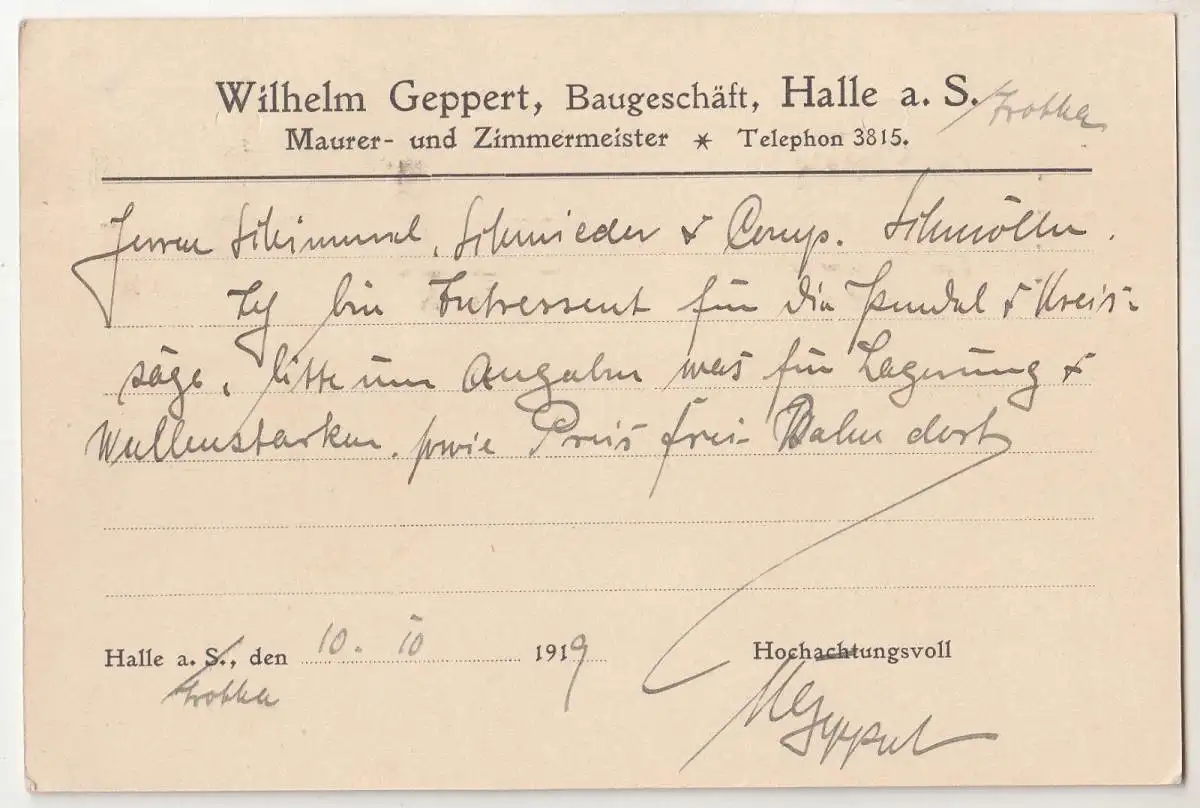 Wilhelm Geppert, Baugeschäft, Halle a. S./Trotha
Maurer- und Zimmermeister * Telephon 3815.
Herren Schimmel, Schmieder & Comp. Schmölln.
Ich bin Intressent für die Pendel & Kreis-
säge, bitte um Angaben was für Lagerung &
Wellenstärken, sowie Preis frei Bahn dort
Halle a. S., den 10. II 1919
Trotha
Hochachtungsvoll
W Geppert